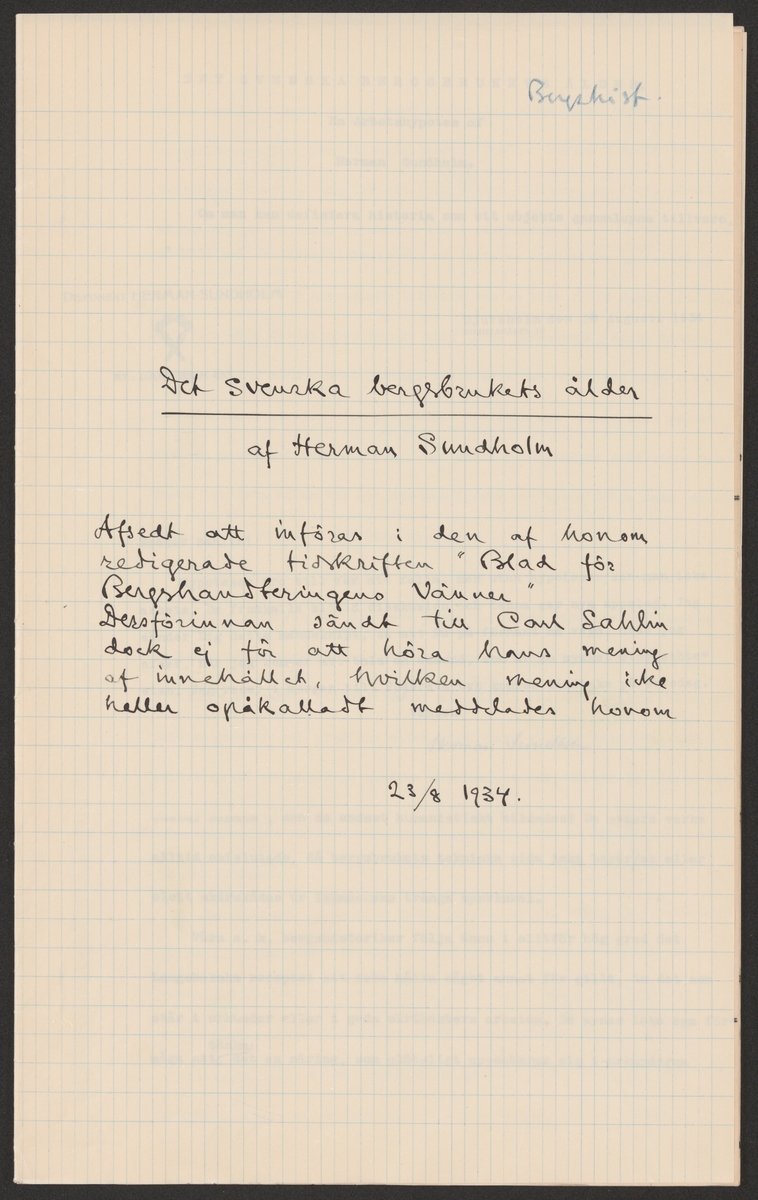 Bergshist.
Det svenska bergsbrukets ålder
af Herman Sundholm
Afsedt att införas i den af honom
redigerade tidskriften "Blad för
Bergshandteringens Vänner"
Dersförinnan sändt till Carl Sahlin
dock ej för att höra hans mening
af innehållet, hvilken mening icke
heller opåkalladt meddelades honom
23/8 1934.